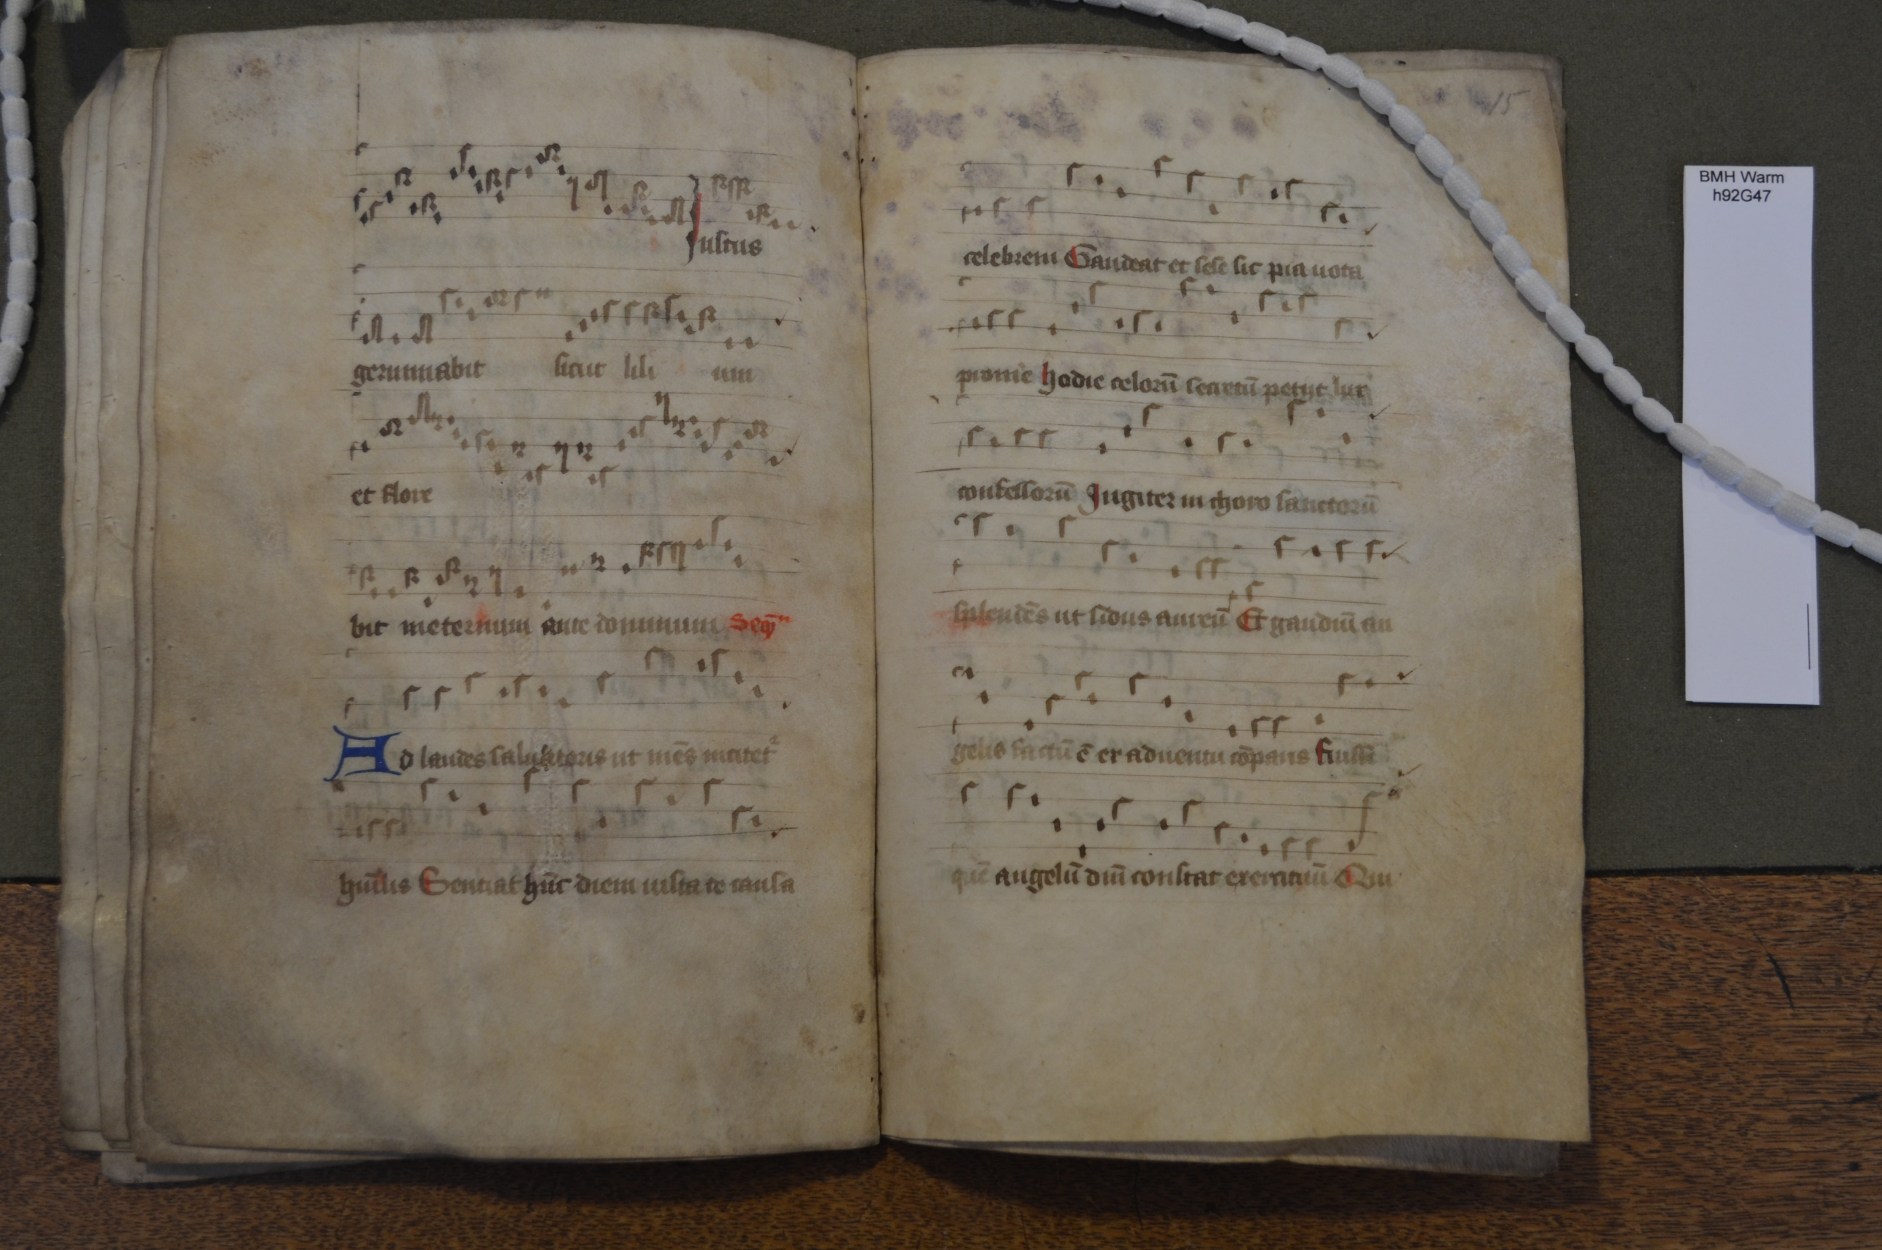 Iustus
germinabit sicut lili um
et flore
bit ineternum ante dominum Seq
Ad laudes saluatoris ut mēs incitet
hūilis Sentiat hūc diem iusta te causa
15
celebrem Gaudeat et sese sic pia uota
promē hodie celorū secretū petijt lux
confessorū Jugiter in choro sanctorū
splendēs ut sidus aureū Et gaudiū an
gelis factū ē ex aduentu cōparis
quē angelū dm̄ constat exercitiū Qui
BMH Warm
h92G47